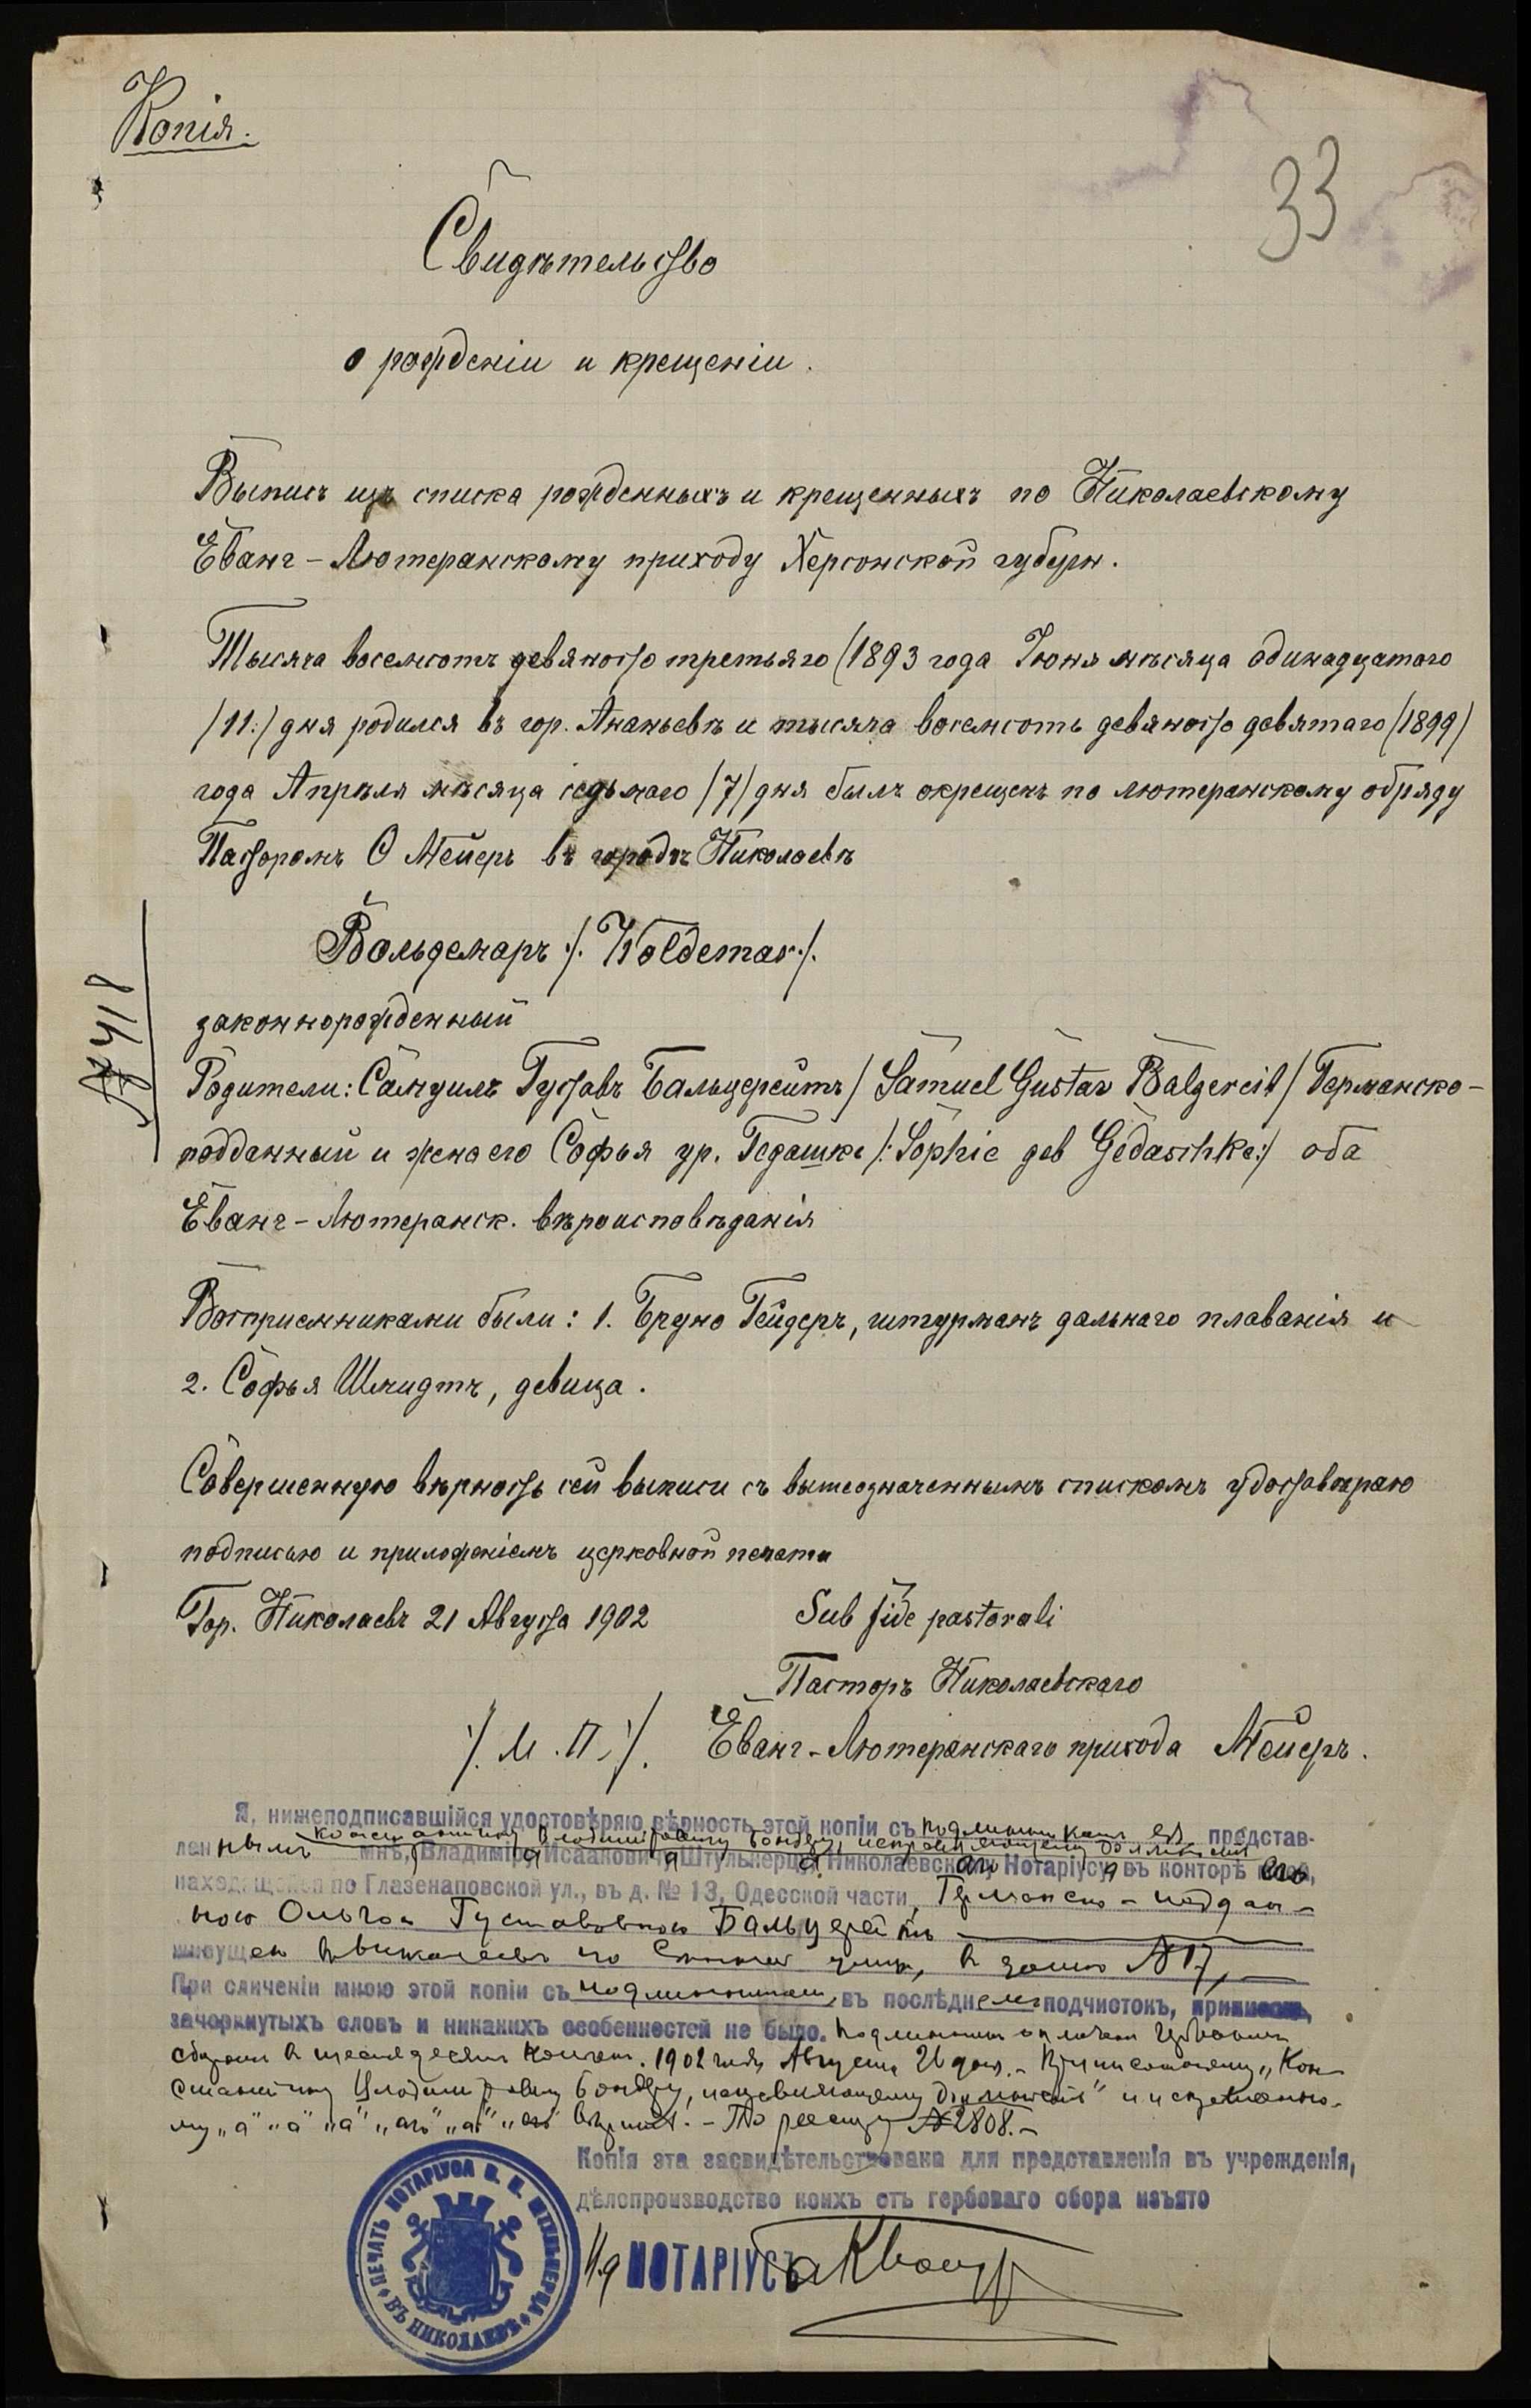 Копія.
33
Свидѣтельство
о рожденіи и крещеніи.
Выпись изъ списка рожденныхъ и крещенныхъ по Николаевскому
Еванг-Лютеранскому приходу Херсонской губерн.
Тысяча восемсотъ девяносто третьяго (1893 года Іюня мѣсяца одинадцатаго
/11:/ дня родился въ гор. Ананьевѣ и тысяча восемсотъ девяносто девятаго (1899)
года Апрѣля мѣсяца седьмаго /7/ дня былъ окрещенъ по лютеранскому обряду
Пасторомъ О Мейеръ въ городѣ Николаевѣ
Вольдемаръ ./. Woldemar./.
№418
законнорожденный
Родители: Самуилъ Густавъ Бальцерейтъ / Samuel Gustav Balzereit / Германско-
подданный и жена его Софья ур. Гедашке /: Sophie geb Gedaschke:/ оба
Еванг-Лютеранск. вѣроисповѣданія
Воспріемниками были: 1. Бруно Гейдеръ, штурманъ дальнаго плаванія и
2. Софья Шмидтъ, девица.
Совершенную вѣрность сей выписи съ вышеозначеннымъ спискомъ удостовѣряю
подписью и приложеніемъ церковной печати
Гор. Николаевъ 21 Августа 1902 Sub fide pastorali
Пасторъ Николаевскаго
/. М.П./. Еванг-Лютеранскаго прихода Мейеръ.
Я, нижеподписавшійся удостовѣряю вѣрность этой копіи съ подлинникомъ ея, представ-
Константину Владиміровичу Бондзу, исправляющему должность
леннымъ мнѣ, Владиміру Исааковичу Штулькерцу, Николаевскому Нотаріусу, въ конторѣ его,
находящейся по Глазенаповской ул., въ д. № 13, Одесской части, Германско-поддан-
ною Ольгою Густавовною Бальцерейтъ
живущею въ Николаевѣ по улицѣ, въ домѣ № 17,
При сличеніи мною этой копіи съ подлинникомъ, въ послѣднемъ подчистокъ, приписокъ,
зачоркнутыхъ словъ и никакихъ особенностей не было. Подлинникъ оплаченъ гербовымъ
сборомъ въ шестьдесятъ копѣекъ. 1902 года Августа 26 дня. - Приписанному „Кон-
стантину Владиміровичу Бондзу, исправляющему должность" и исправленно-
му „а" „а" „а" „аго" „а" „его" вѣрить. - По реестру № 2808. -
Копія эта засвидѣтельствована для представленія въ учрежденія,
дѣлопроизводство коихъ отъ гербоваго сбора изъято
И.д НОТАРІУСЪ
ПЕЧАТЬ НОТАРІУСА В. И. ШТУЛЬКЕРЦА
ВЪ НИКОЛАЕВѢ